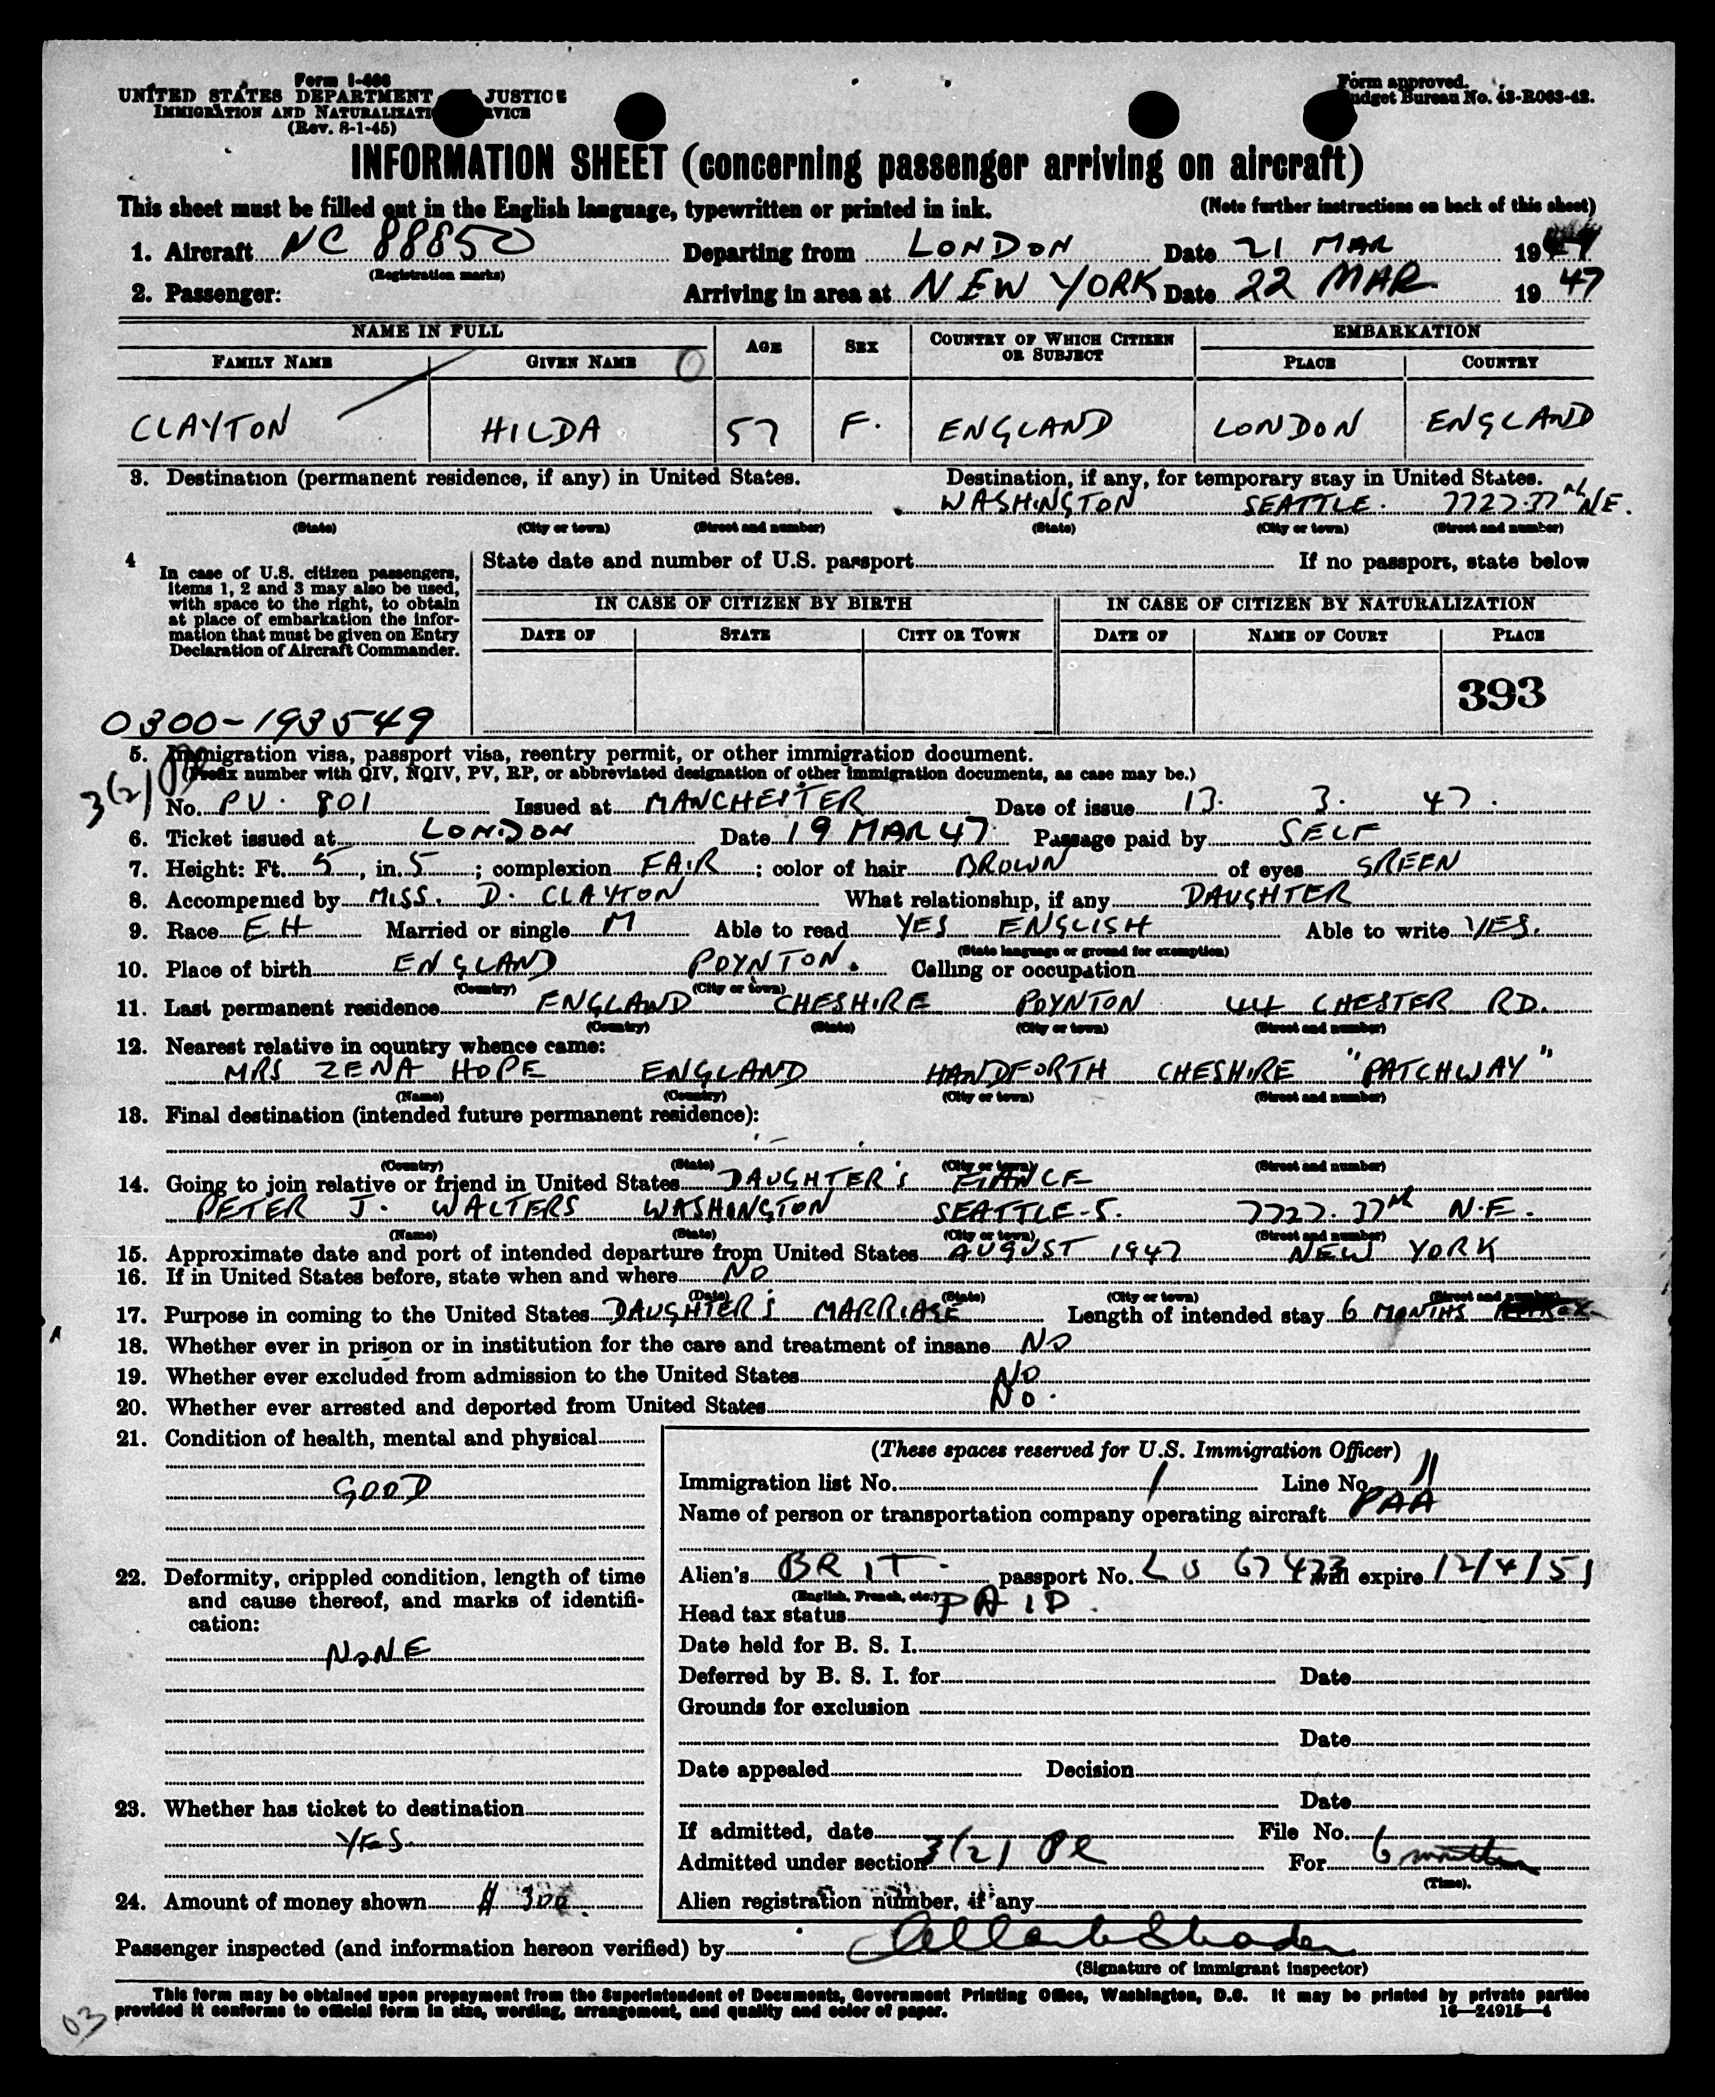 Form I-466
UNITED STATES DEPARTMENT JUSTICE
IMMIGRATION AND NATURALIZATI RVICE
(Rev. 8-1-45)
Form approved.
udget Bureau No. 43-R063-42.
INFORMATION SHEET (concerning passenger arriving on aircraft)
This sheet must be filled out in the English language, typewritten or printed in ink. (Note further instructions on back of this sheet)
1. Aircraft NC 88850 Departing from LONDON Date 21 MAR 19
(Registration marks)
2. Passenger: Arriving in area at NEW YORK Date 22 MAR 19 47
NAME IN FULL AGE SEX COUNTRY OF WHICH CITIZEN OR SUBJECT EMBARKATION
FAMILY NAME GIVEN NAME PLACE COUNTRY
CLAYTON HILDA 57 F. ENGLAND LONDON ENGLAND
3. Destination (permanent residence, if any) in United States. Destination, if any, for temporary stay in United States.
WASHINGTON SEATTLE. 7727.37 NE.
(State) (City or town) (Street and number) (State) (City or town) (Street and number)
4 In case of U.S. citizen passengers, items 1, 2 and 3 may also be used, with space to the right, to obtain at place of embarkation the information that must be given on Entry Declaration of Aircraft Commander.
State date and number of U.S. passport If no passport, state below
IN CASE OF CITIZEN BY BIRTH IN CASE OF CITIZEN BY NATURALIZATION
DATE OF STATE CITY OR TOWN DATE OF NAME OF COURT PLACE
393
0300-193549
5. Immigration visa, passport visa, reentry permit, or other immigration document.
(Prefix number with QIV, NQIV, PV, RP, or abbreviated designation of other immigration documents, as case may be.)
3(2)
No. PV. 801 Issued at MANCHESTER Date of issue 13. 3. 47.
6. Ticket issued at LONDON Date 19 MAR 47 Passage paid by SELF
7. Height: Ft. 5, in. 5; complexion FAIR; color of hair BROWN of eyes GREEN
8. Accompanied by MISS. D. CLAYTON What relationship, if any DAUGHTER
9. Race EH Married or single M Able to read YES ENGLISH Able to write YES.
(State language or ground for exemption)
10. Place of birth ENGLAND POYNTON. Calling or occupation
(Country) (City or town)
11. Last permanent residence ENGLAND CHESHIRE POYNTON 44 CHESTER RD.
(Country) (State) (City or town) (Street and number)
12. Nearest relative in country whence came:
MRS ZENA HOPE ENGLAND HANDFORTH CHESHIRE "PATCHWAY"
(Name) (Country) (City or town) (Street and number)
13. Final destination (intended future permanent residence):
(Country) (State) (City or town) (Street and number)
14. Going to join relative or friend in United States DAUGHTER'S FIANCE
PETER J. WALTERS WASHINGTON SEATTLE-5. 7727.37 N.E.
(Name) (State) (City or town) (Street and number)
15. Approximate date and port of intended departure from United States AUGUST 1947 NEW YORK
16. If in United States before, state when and where NO
(Date) (State) (City or town) (Street and number)
17. Purpose in coming to the United States DAUGHTER'S MARRIAGE Length of intended stay 6 MONTHS
18. Whether ever in prison or in institution for the care and treatment of insane NO
19. Whether ever excluded from admission to the United States NO
20. Whether ever arrested and deported from United States NO.
21. Condition of health, mental and physical
GOOD
22. Deformity, crippled condition, length of time and cause thereof, and marks of identification:
NONE
23. Whether has ticket to destination
YES.
24. Amount of money shown $ 300.
(These spaces reserved for U.S. Immigration Officer)
Immigration list No. 1 Line No. 11
Name of person or transportation company operating aircraft PAA
Alien's BRIT. passport No. L O 67473 will expire 12/4/51
(English, French, etc.)
Head tax status PAID.
Date held for B. S. I.
Deferred by B. S. I. for Date
Grounds for exclusion
Date
Date appealed Decision
Date
If admitted, date File No.
Admitted under section 3(2) For 6 months
(Time).
Alien registration number, if any
Passenger inspected (and information hereon verified) by
(Signature of immigrant inspector)
This form may be obtained upon prepayment from the Superintendent of Documents, Government Printing Office, Washington, D.C. It may be printed by private parties
provided it conforms to official form in size, wording, arrangement, and quality and color of paper. 16—24915-4
03